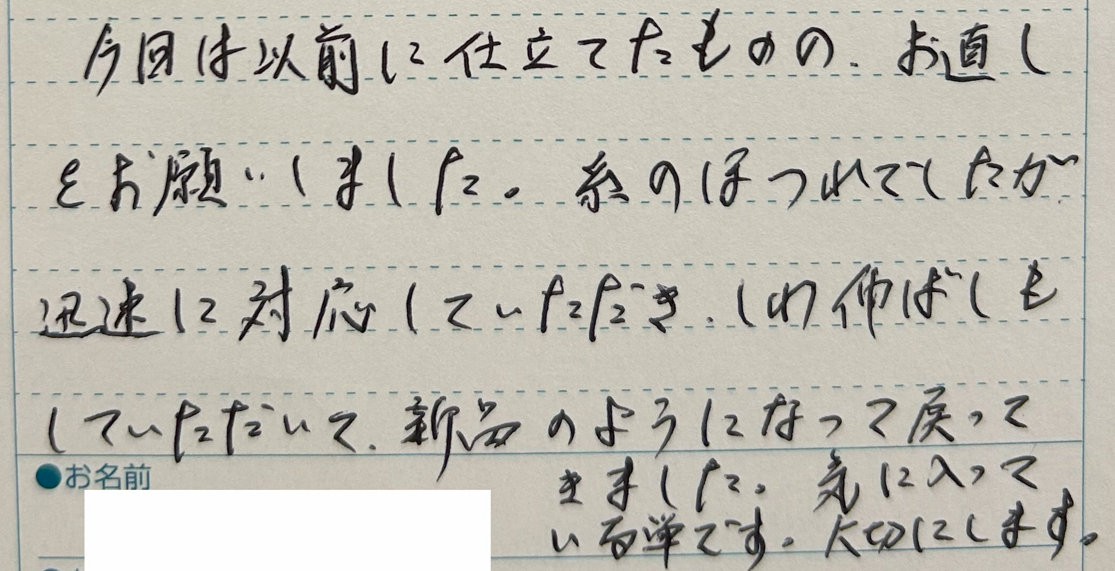 今回は以前に仕立てたものの、お直し
をお願いしました。糸のほつれでしたが
迅速に対応していただき、しわ伸ばしも
していただいて、新品のようになって戻って
きました。気に入って
いるです。大切にします。
●お名前